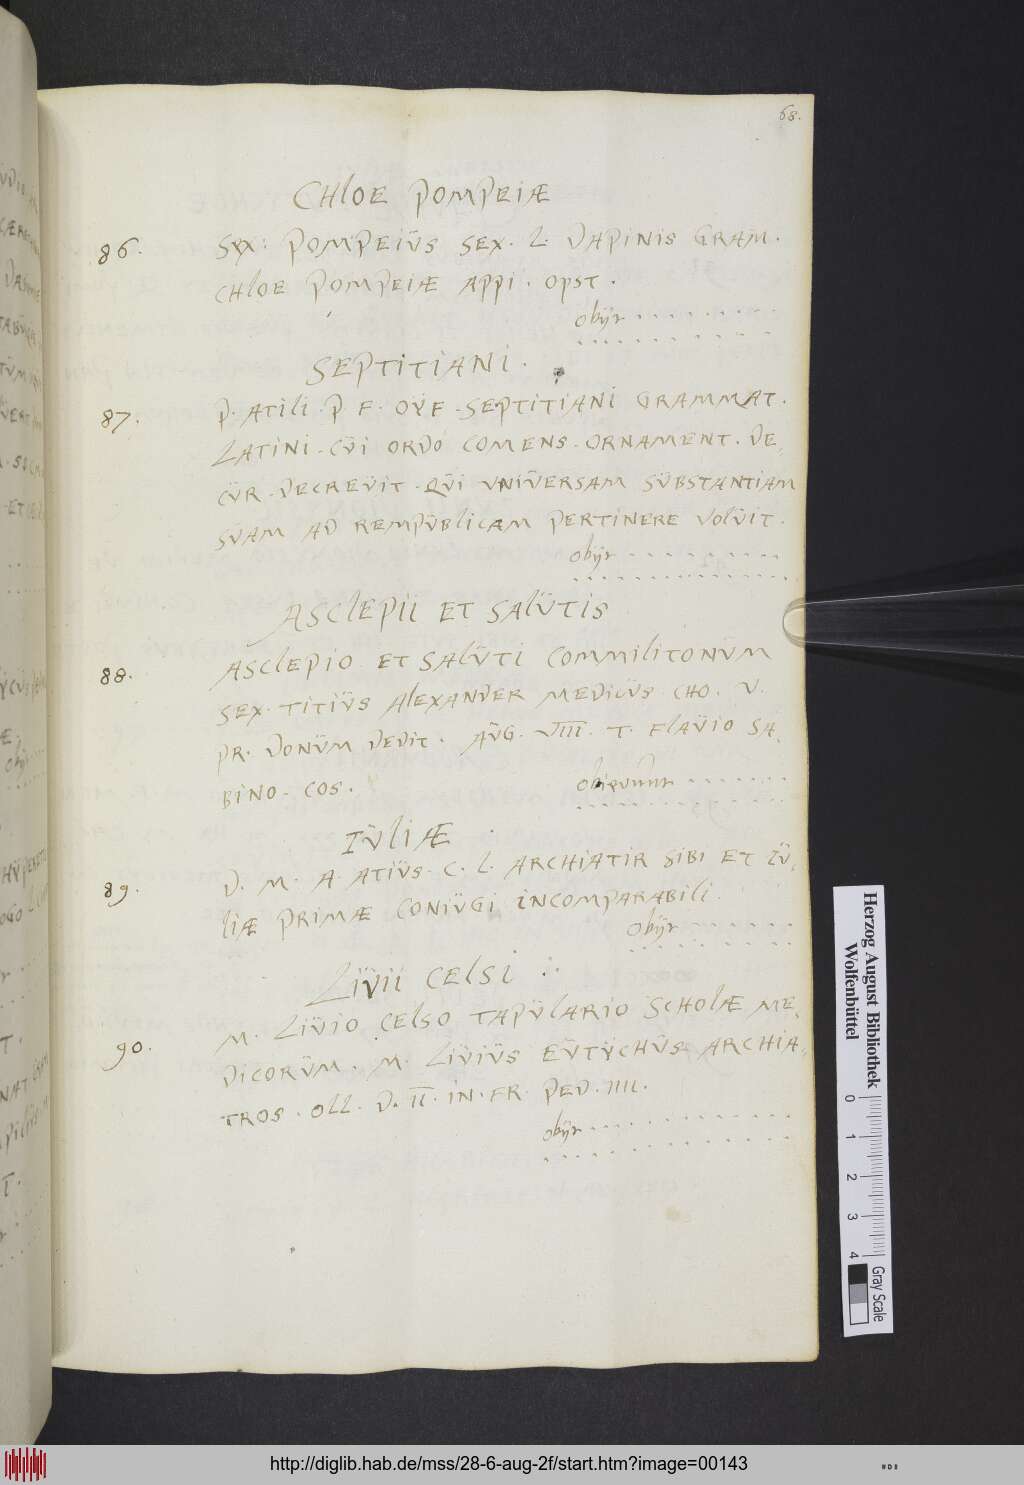 68.
CHLOE POMPEIÆ
86. SEX: POMPEIUS SEX. L. DAPINIS GRAM.
CHLOE POMPEIÆ APPI. OPST.
obijt . . . . . . . .
SEPTITIANI.
87. P. ATILI. P F. OÿF. SEPTITIANI GRAMMAT.
LATINI. CŭI ORDO COMENS. ORNAMENT. DE,
CŭR. DECREŭIT. QŭI UNIŭERSAM SŭBSTANTIAM
SŭAM AD REMPŭBLICAM PERTINERE VOLŭIT.
obijt . . . . . . . .
ASCLEPII ET SALŭTIS
88. ASCLEPIO ET SALŭTI COMMILITONŭM
SEX. TITIŭS ALEXANDER MEDICŭS CHO. V.
PR. DONŭM DEDIT. AŭG. VIII. T. FLAŭIO SA,
BINO. COS.
obierunt . . . . . .
IŭLIÆ
89. D. M. A. ATIŭS. C. L. ARCHIATIR SIBI ET Iŭ,
LIÆ PRIMÆ CONIŭGI INCOMPARABILI.
obijt . . . . . .
LIŭII CELSI
90. M. LIŭIO CELSO TAPŭLARIO SCHOLÆ ME,
DICORŭM. M. LIŭIŭS EŭTYCHŭS ARCHIA,
TROS. OLL. D. II. IN. FR. PED. IIII.
obijt . . . . . . . .
Herzog August Bibliothek
Wolfenbüttel
0 1 2 3 4
Gray Scale
http://diglib.hab.de/mss/28-6-aug-2f/start.htm?image=00143